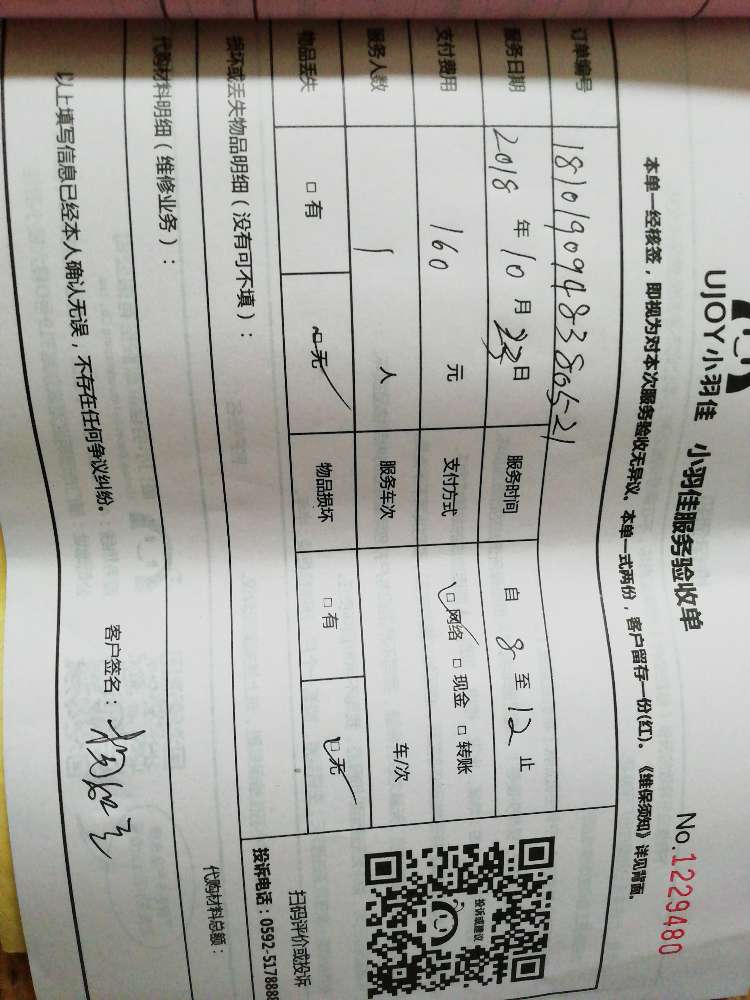 UJOY小羽佳 小羽佳服务验收单
No.1229480
本单一经核签，即视为对本次服务验收无异议。本单一式两份，客户留存一份(红)。《维保须知》详见背面。
订单编号 181019094838052­1
服务日期 2018 年 10 月 23 日 服务时间 自 8 至 12 止
支付费用 160 元 支付方式 □网络 □现金 □转账
服务人数 1 人 服务车次 车/次
物品丢失 □有 □无 物品损坏 □有 □无
投诉或建议
扫码评价或投诉
损坏或丢失物品明细（没有可不填）：
投诉电话：0592-5178888
代购材料明细（维修业务）：
代购材料总额：
以上填写信息已经本人确认无误，不存在任何争议纠纷。
客户签名：